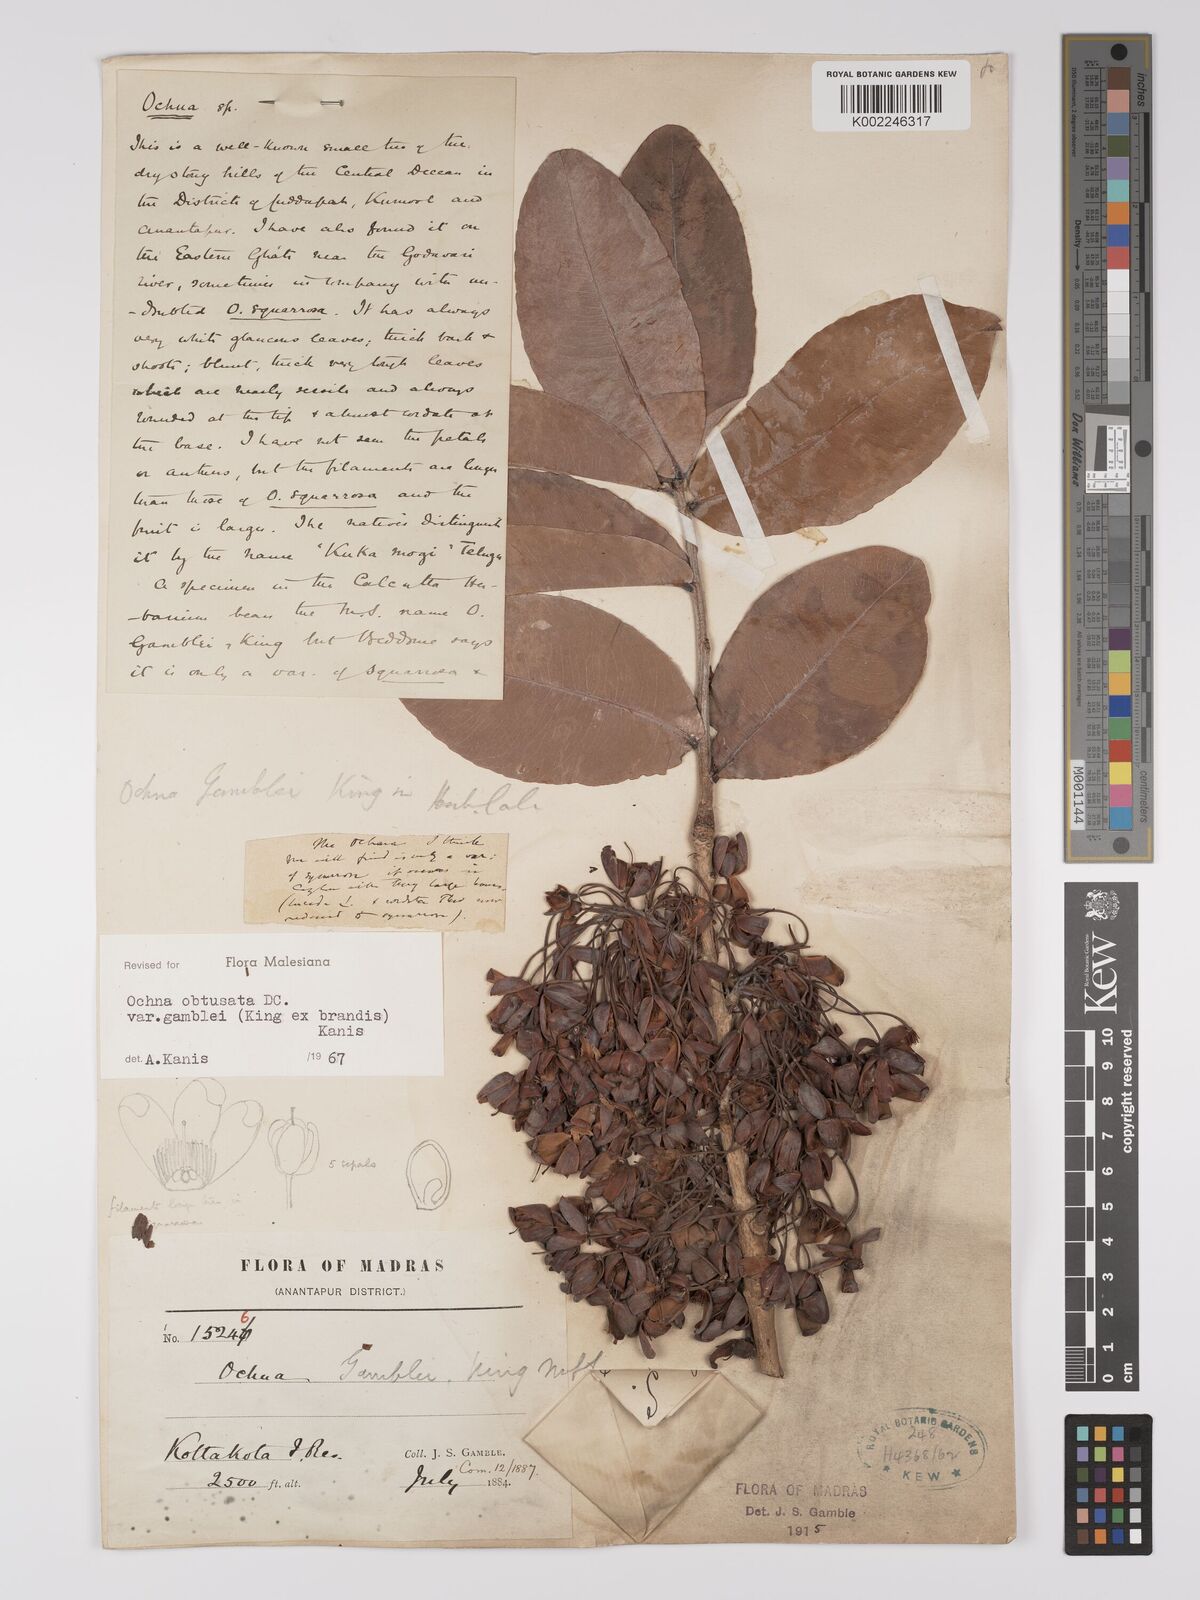 ROYAL BOTANIC GARDENS KEW
K002246317
Ochna sp.
This is a well-known small tree of the
dry stony hills of the Central Deccan in
the Districts of Cuddapah, Kurnool and
Anantapur. I have also found it on
the Eastern Gháts near the Godavari
river, sometimes in company with un-
-doubted O. squarrosa. It has always
very white glaucous leaves; thick bark &
shoots; blunt, thick very tough leaves
which are nearly sessile and always
rounded at the tip & almost cordate at
the base. I have not seen the petals
or anthers, but the filaments are longer
than those of O. squarrosa and the
fruit is larger. The natives distinguish
it by the name "Kuka mogi" Telugu
A specimen in the Calcutta Her-
-barium bears the M.S. name O.
Gamblei, King but Beddome says
it is only a var. of squarrosa &
Ochna Gamblei King in Herb. Calc
The Ochna I think
you will find is only a var:
of squarrosa it occurs in
Ceylon with very large leaves
(lucida L. & cordata Thw now
reduced to squarrosa).
Revised for Flora Malesiana
Ochna obtusata DC.
var.gamblei (King ex brandis)
Kanis
det. A.Kanis /1967
5 sepals
filaments longer than in
squarrosa
FLORA OF MADRAS
(ANANTAPUR DISTRICT.)
No. 15246
Ochna Gamblei, King
Kottakota F. Res.
2500 ft. alt.
Coll. J. S. GAMBLE.
Com. 12/1887.
July 1884.
ROYAL BOTANIC GARDENS
248
H4368/62
KEW
FLORA OF MADRAS
Det. J. S. Gamble
1915
inches
Density
Don Williams
M001144
cm
Kew
Royal Botanic Gardens
copyright reserved
0 1 2 3 4 5 6 7 8 9 10
cm